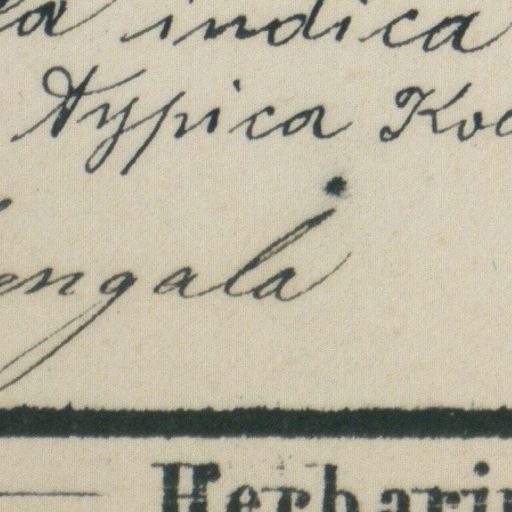 indica
typica
engala
Herbari